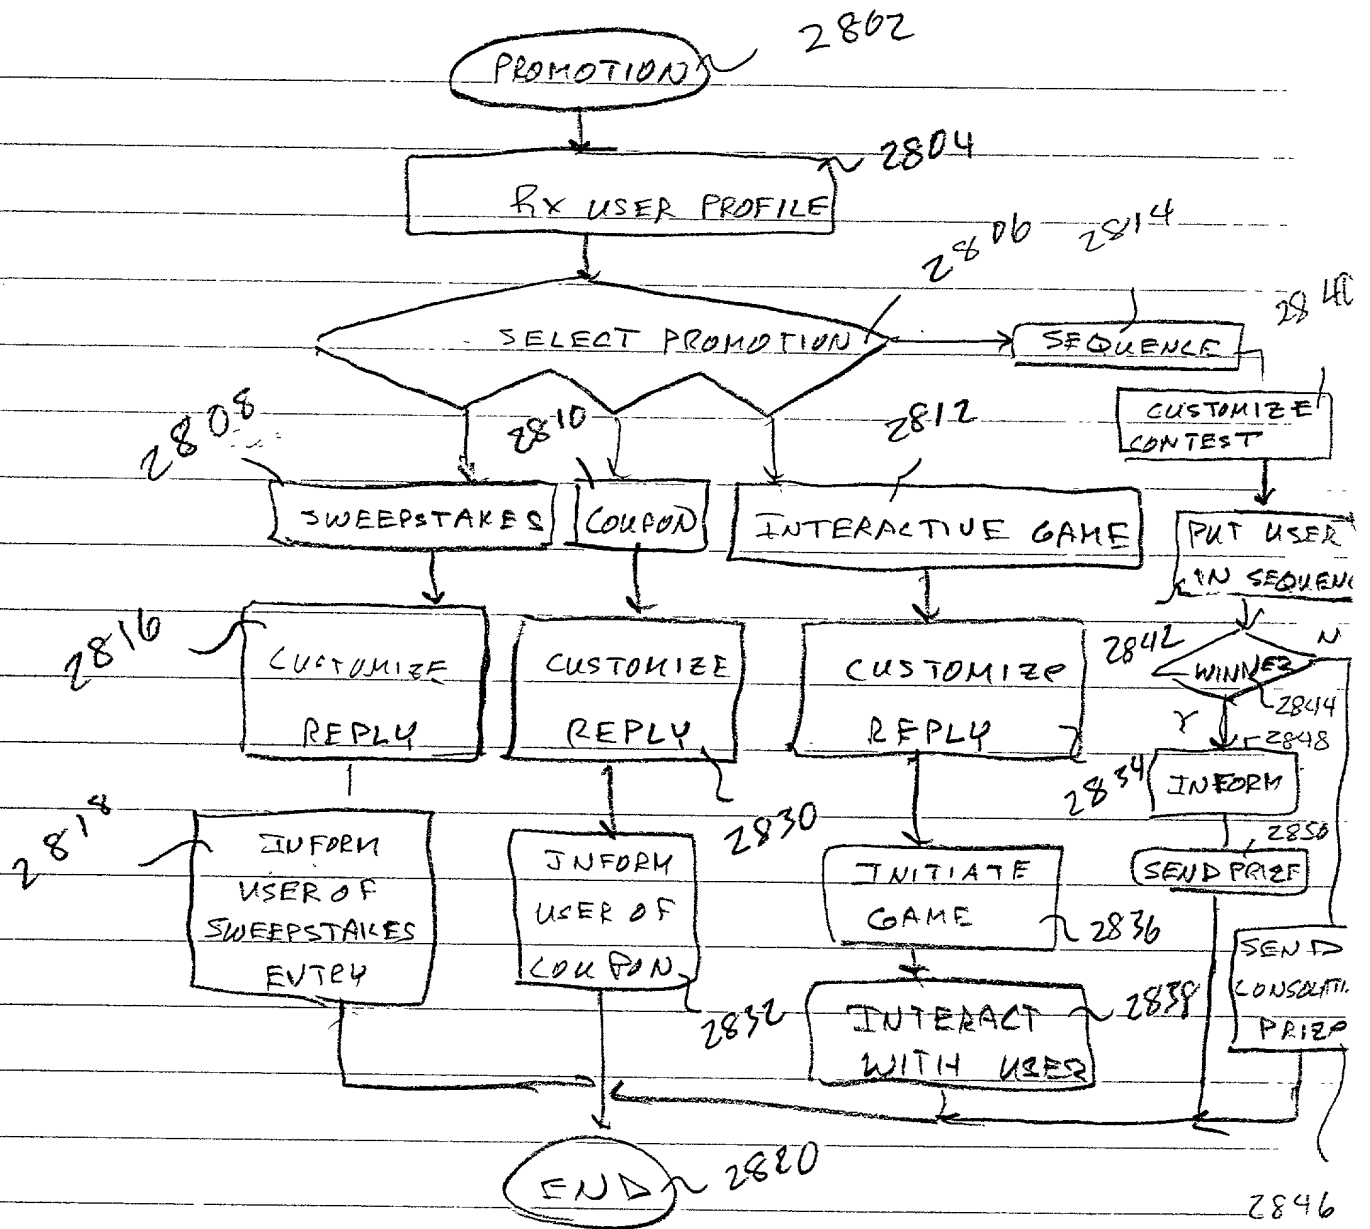 PROMOTION
2802
Rx USER PROFILE
2804
SELECT PROMOTION
2806
2814
SEQUENCE
2840
CUSTOMIZE
CONTEST
2808
SWEEPSTAKES
2810
COUPON
2812
INTERACTIVE GAME
PUT USER
IN SEQUENC
2816
CUSTOMIZE
REPLY
CUSTOMIZE
REPLY
2830
CUSTOMIZE
REPLY
2834
2842
WINNER
N
2844
Y
2848
INFORM
2850
SEND PRIZE
2818
INFORM
USER OF
SWEEPSTAKES
ENTRY
INFORM
USER OF
COUPON
2832
INITIATE
GAME
2836
INTERACT
WITH USER
2838
SEND
CONSOLATI
PRIZE
2846
END
2820